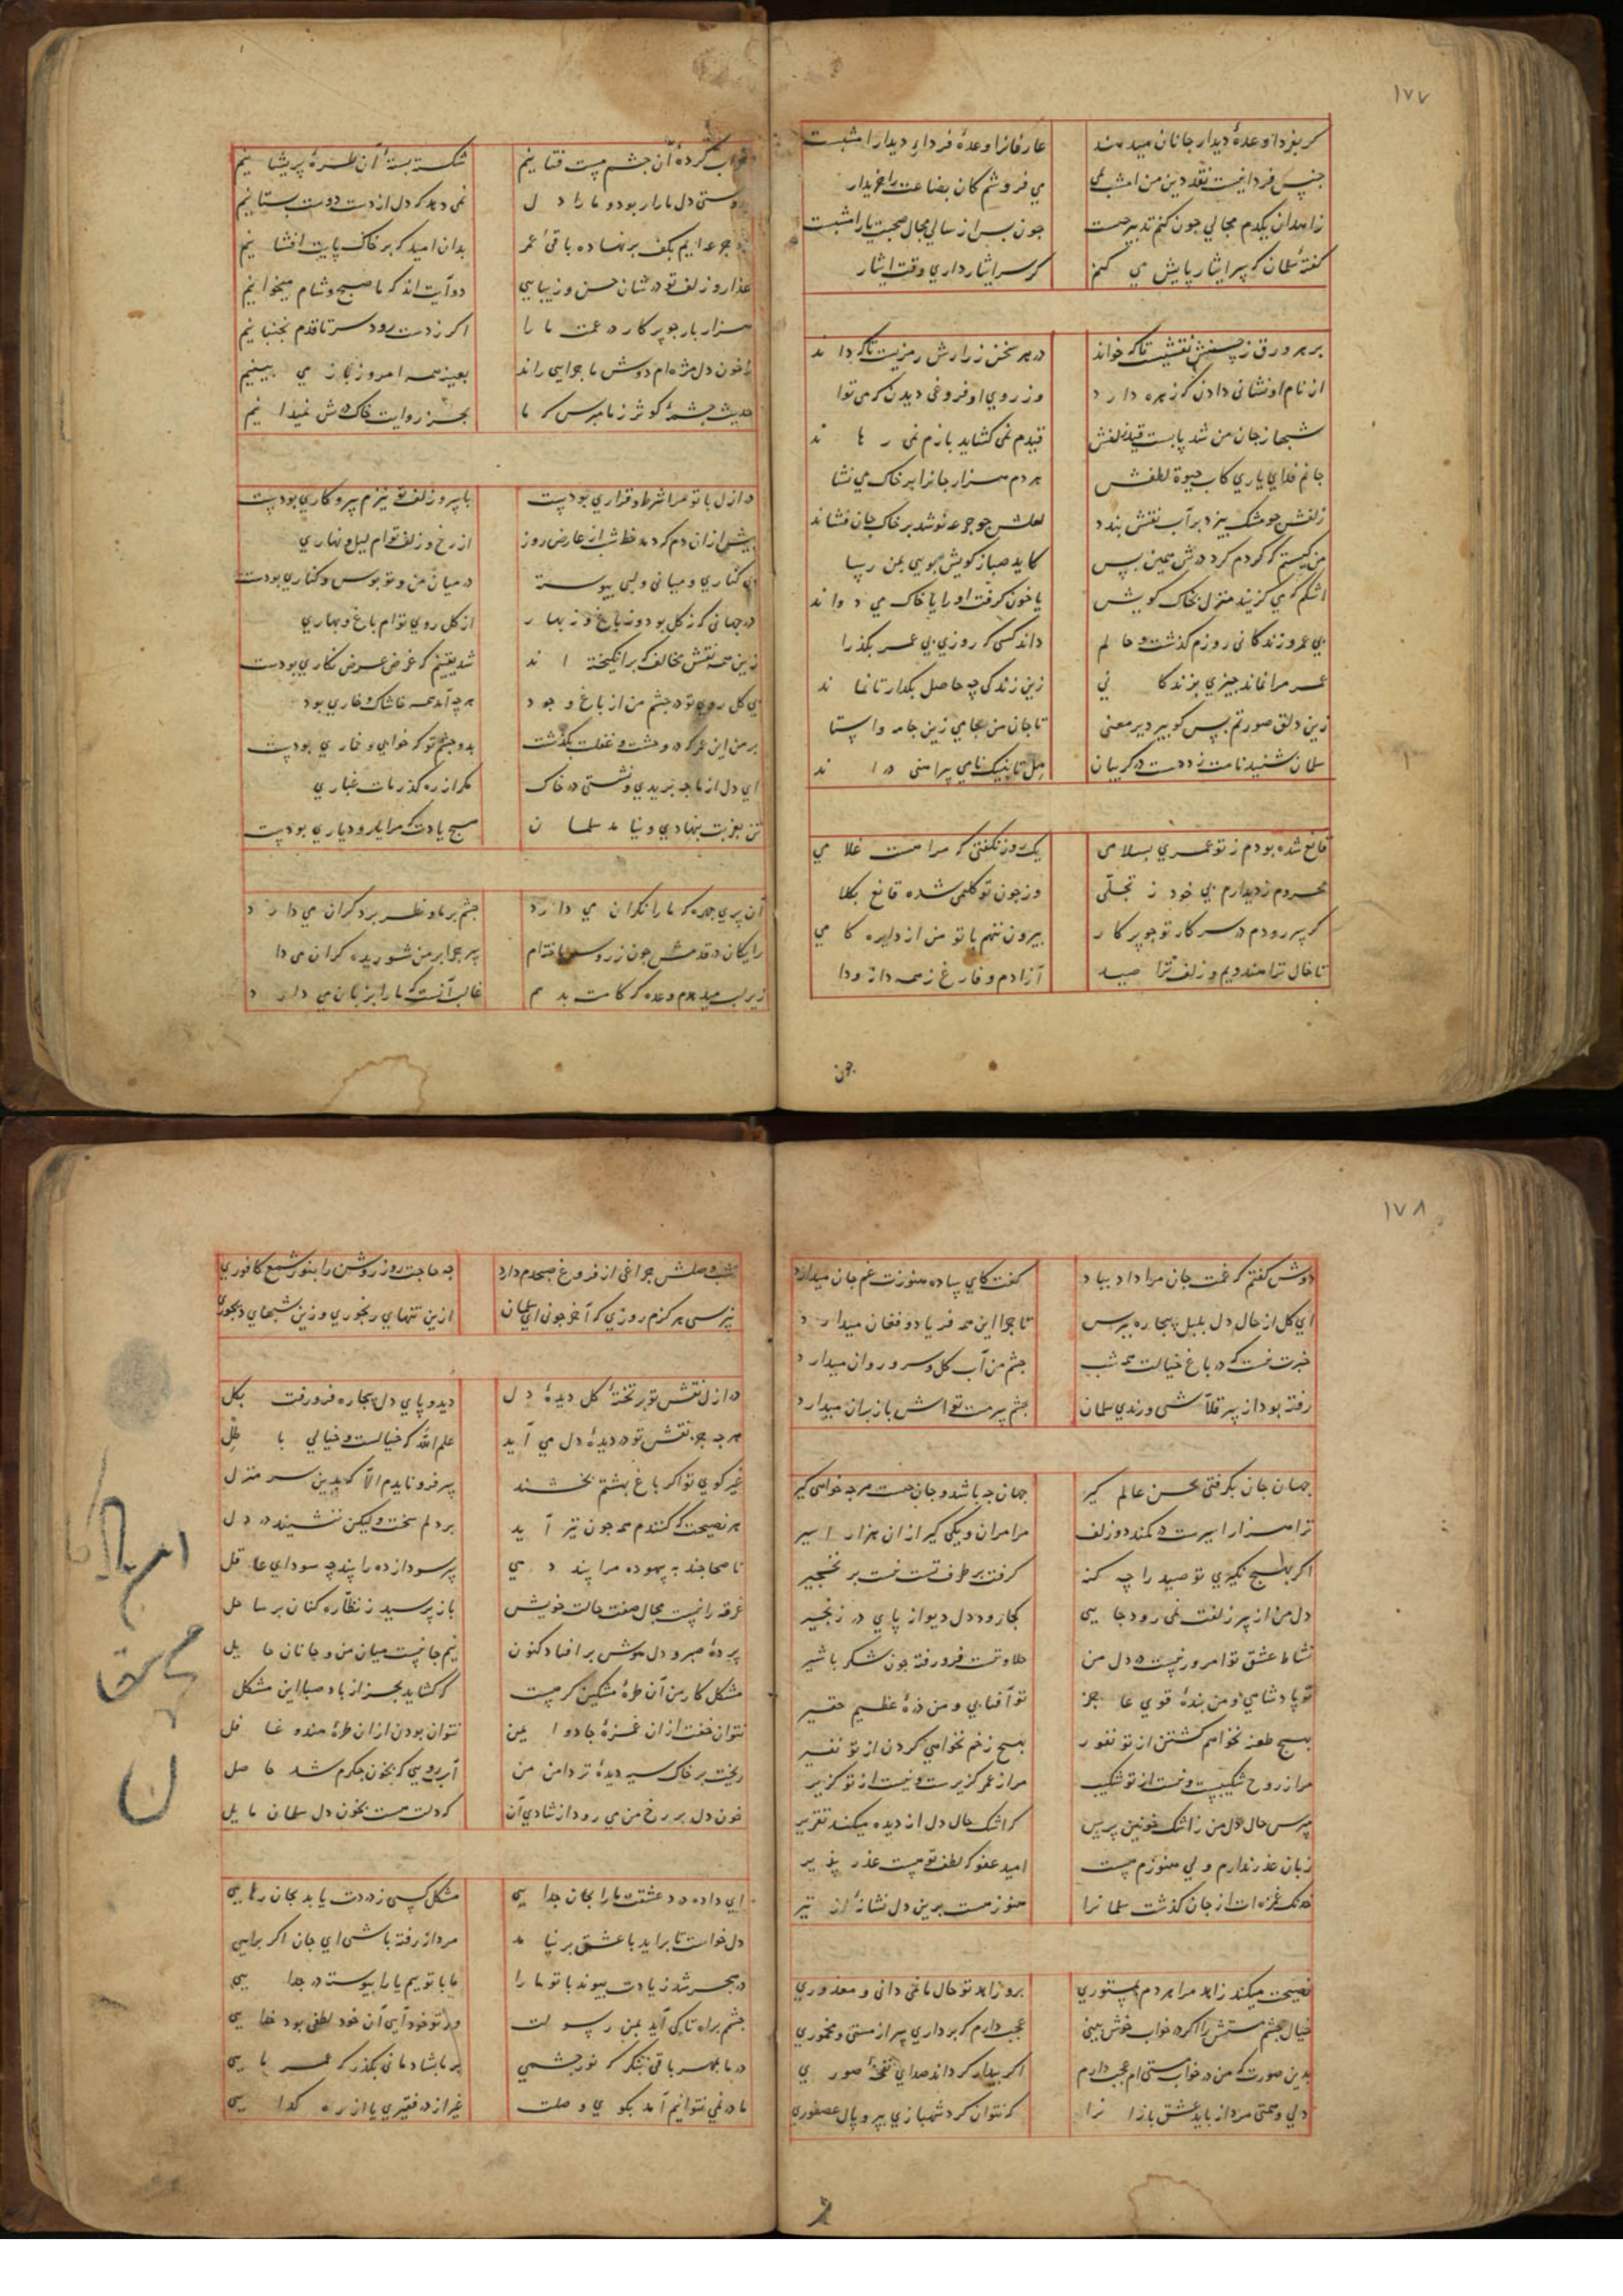 ۱۷۷
گر بفردا وعدهٔ دیدار جانان میدهند عارفانرا وعدهٔ فردای دیدار امشبست
جنس فردا نیست نقد دین من امشب می فروشم کان بضاعت را خریدار
زاهدان یکدم مجالی چون کنم تدبیر چیست چون پس از سالی مجال صحبت یار امشبست
گفتهٔ سلمان که سر ایثار پایش می کنم گر سر ایثار داری وقت ایثار
بر هر ورق ز حسنش نقشیست تا که خواند در هر سخن ز رازش رمزیست تا که داند
از نام او نشانی دادن که زهره دارد وز روی او فروغی دیدن که می توا
شهباز جان من شد پابست قید زلفش قیدم نمی کشاید بازم نمی رهاند
جانم فدای یاری کاب حیوة لطفش هر دم هزار جانرا بر خاک می نشا
زلفش چو مشک بیزد بر آب نقش بندد لعلش چو جرعه نوشد بر خاک جان فشاند
من کیستم که گردم گرد درش همین بس کاید صبا ز کویش بویی بمن رسا
اشکم که می گزیند منزل بخاک کویش یا خون گرفت او را یا خاک می دواند
بی عمر و زندگانی روزم گذشت و حالم داند کسی که روزی بی عمر بگذرا
عمر مرا نماند چیزی بزندگانی زین زندگی چه حاصل بگذار تا نماند
زین دلق صورتم بس کو پیر دیر معنی تا جان من بجامی زین جامه وا ستا
سلمان شنید نامت زد دست در گریبان هل تا بنیک نامی پیراهنی دراند
قانع شده بودم ز تو عمری بسلامی یک روز نگفتی که مرا هست غلامی
محروم ز دیدارم بی خود ز تجلّی وز چون تو کلیمی شده قانع بکلا
گر سر رود م در سر کار تو چو پرکار بیرون ننهم با تو من از دایره گامی
تا خال ترا هندویم و زلف ترا صید آزادم و فارغ ز همه دانه ودا
چون
خراب کردهٔ آن چشم مست فتانیم شکسته بستهٔ آن طرهٔ پریشانیم
دل ما را ربود و ما را دل نمی دهد که دل از دست دوست بستانیم
جرعه ایم بکف بر نهاده باقیٔ عمر بدان امید که بر خاک پایت افشانیم
عذار و زلف تو در شان حسن و زیبایی دو آیت اند که ما صبح و شام میخوانیم
هزار بار چو پرکار در عمت ما را اگر ز دست رود سر ز تا قدم نجنبانیم
ز خون دل مژه ام دوش ماجرایی راند بعینه همه امروز باز می بینیم
حدیث چشمهٔ کوثر ز ما مپرس که ما بجز روایت خاک درش نمیدانیم
در ازل با تو مرا شرط و قراری بودست با سر زلف تو نیزم سر و کاری بودست
پیش از آن دم که دمد خط شب از عارض روز از رخ و زلف تو ام لیل و نهاری
بی کناری و میانی و لبی پیوسته در میان من و تو بوس و کناری بودست
در جهانی که نه گل بود و نه باغ و نه بهار از گل روی تو ام باغ و بهاری
زین همه نقش مخالف که بر انگیخته اند شد یقینم که غرض عرض نگاری بودست
بی گل روی تو در چشم من از باغ وجود هر چه آمد همه خاشاک و خاری بود
بر من این عمر که در وحشت و غفلت بگذشت بدو چشم تو که خوابی و خماری بودست
ای دل از ما چه بریدی و نشستی در خاک مگر از ره گذر مات غباری
تن بغربت بنهادی و نیامد سلمان هیچ یادت که مرا یار و دیاری بودست
آن پری چهره که ما را نگران می دارد چشم بر ما و نظر بر دگران می دارد
رایگان در قدمش چون زر و سر افتادم سر چرا بر من شوریده گران می دا
زیر لب میدهدم وعده که کامت بدهم غالب آنست که ما را بزبان می دارد
۱۷۸
دوش گفتم که غمت جان مرا داد بباد گفت کای ساده هنوزت غم جان میدارد
ای گل از حال دل بلبل بیچاره بپرس تا چرا این همه فریاد و فغان میدارد
خبرت نیست که در باغ خیالت همه شب چشم من آب گل و سرو روان میدارد
رفته بود از سر قلاشی و رندی سلمان چشم سرمست تو اش باز بران میدارد
جهان جان بگرفتی بحسن عالم گیر جهان چه باشد و جان چیست هر چه خواهی گیر
ترا هزار اسیرست در کمند دو زلف مرا مران و یکی گیر از آن هزار اسیر
اگر بهیچ نگیری تو صید را چه کند گرفت بر طرف تست نیست بر نخجیر
دل من از سر زلفت نمی رود جایی کجا رود دل دیوانه پای در زنجیر
نشاط عشق تو امروز نیست در دل من حلاوتیست فرو رفته چون شکر با شیر
تو پادشاهی و من بندهٔ قوی عاجز تو آفتابی و من ذرهٔ عظیم حقیر
بهیچ طعنه نخواهم گشتن از تو نفور بهیچ زخم نخواهی کردن از تو نفیر
مرا ز روح شکیبست و نیست از تو شکیب مرا ز عمر گزیرست و نیست از تو گزیر
مپرس حال دل من ز اشک خونین پرس که اشک حال دل از دیده میکند تقریر
زبان عذر ندارم ولی هنوزم هست امید عفو که لطف تو هست عذر پذیر
خدنگ غمزه ات از جان گذشت سلمانرا هنوز هست برین دل نشانهٔ آن تیر
نصیحت میکند زاهد مرا هر دم بمستوری برو زاهد تو حال ما نمی دانی و معذوری
خیال چشم مستش را اگر در خواب خوش بینی عجب دارم که برداری سر از مستی و مخموری
بدین صورت که من در خواب مستی ام عجب دارم اگر بیدار گرداند صدای نفخهٔ صوری
دلی و همتی مردانه باید عشق بازانرا که نتوان کرد شهبازی بپر و بال عصفوری
شب وصلش چراغی از فروغ صبحدم دارد چه حاجت روز روشن را بنور شمع کافوری
نپرسی هرگزم روزی که آخر چون ای سلمان ازین تنهای رنجوری وزین شبهای دیجوری
در ازل نقش تو بر تختهٔ گل دیدهٔ دل دید و پای دل بیچاره فرو رفت بگل
هر چه جز نقش تو در دیدهٔ دل می آید علم الله که خیالست و خیالی باطل
غیر کوی تو اگر باغ بهشتم بخشند سر فرو نایدم الّا که بدین سر منزل
هر نصیحت که کنندم همه چون تیر آید بر دلم سخت ولیکن ننشیند در دل
ناصحا چند به بیهوده مرا پند دهی پر سودا زده را پند چه سودای عاقل
غرقه را نیست مجال صفت حالت خویش باز پرسید ز نظّاره کنان بر ساحل
پردهٔ صبر و دل هوش بر افتاد کنون نیم جانیست میان من و جانان حایل
مشکل کار من آن طرهٔ مشکین گر هست که کشاید بجز از باد صبا این مشکل
نتوان خفت از آن غمزهٔ جادو ایمن نتوان بودن از آن طرهٔ هندو غافل
ریخت بر خاک سیه دیدهٔ تر دامن من آب رویی که بخون جگرم شد حاصل
خون دل بر رخ من می رود از شادی آن که دلت هست بخون دل سلمان مایل
ای داده درد عشقت ما را بجان جدایی مشکل کسی ز دردت یابد بجان رهایی
دل خواست تا بر آید با عشق بر نیامد مردانه رفته باشی ای جان اگر برایی
در هجر شد زیادت پیوند با تو ما را ما با توییم یارا پیوسته در جدایی
چشم براه تا کی آید بمن رسولت ور تو خود آیی آن خود لطفی بود خدایی
در ما بمهر باقی بنگر که نور چشمی بر ما بشادمانی بگذر که عمر مایی
ما در نمی توانیم آمد بکوی وصلت غیر از در فقیری یا از ره گدایی